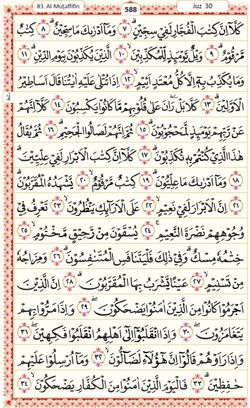 83. Al-Muṭaffifīn 588 Juz 30
كَلَّآ اِنَّ كِتٰبَ الْفُجَّارِ لَفِيْ سِجِّيْنٍۗ ٧ وَمَآ اَدْرٰىكَ مَا سِجِّيْنٌۗ ٨ كِتٰبٌ
مَّرْقُوْمٌۗ ٩ وَيْلٌ يَّوْمَىِٕذٍ لِّلْمُكَذِّبِيْنَۙ ١٠ الَّذِيْنَ يُكَذِّبُوْنَ بِيَوْمِ الدِّيْنِۗ ١١
وَمَا يُكَذِّبُ بِهٖٓ اِلَّا كُلُّ مُعْتَدٍ اَثِيْمٍۙ ١٢ اِذَا تُتْلٰى عَلَيْهِ اٰيٰتُنَا قَالَ اَسَاطِيْرُ
الْاَوَّلِيْنَۗ ١٣ كَلَّا بَلْ رَانَ عَلٰى قُلُوْبِهِمْ مَّا كَانُوْا يَكْسِبُوْنَ ١٤ كَلَّآ اِنَّهُمْ
عَنْ رَّبِّهِمْ يَوْمَىِٕذٍ لَّمَحْجُوْبُوْنَۗ ١٥ ثُمَّ اِنَّهُمْ لَصَالُوا الْجَحِيْمِۗ ١٦ ثُمَّ يُقَالُ
هٰذَا الَّذِيْ كُنْتُمْ بِهٖ تُكَذِّبُوْنَۗ ١٧ كَلَّآ اِنَّ كِتٰبَ الْاَبْرَارِ لَفِيْ عِلِّيِّيْنَۗ
١٨ وَمَآ اَدْرٰىكَ مَا عِلِّيُّوْنَۗ ١٩ كِتٰبٌ مَّرْقُوْمٌۙ ٢٠ يَّشْهَدُهُ الْمُقَرَّبُوْنَۗ
٢١ اِنَّ الْاَبْرَارَ لَفِيْ نَعِيْمٍۙ ٢٢ عَلَى الْاَرَاۤىِٕكِ يَنْظُرُوْنَۙ ٢٣ تَعْرِفُ فِيْ
وُجُوْهِهِمْ نَضْرَةَ النَّعِيْمِۚ ٢٤ يُسْقَوْنَ مِنْ رَّحِيْقٍ مَّخْتُوْمٍۙ ٢٥
خِتٰمُهٗ مِسْكٌۗ وَفِيْ ذٰلِكَ فَلْيَتَنَافَسِ الْمُتَنَافِسُوْنَۗ ٢٦ وَمِزَاجُهٗ
مِنْ تَسْنِيْمٍۙ ٢٧ عَيْنًا يَّشْرَبُ بِهَا الْمُقَرَّبُوْنَۗ ٢٨ اِنَّ الَّذِيْنَ
اَجْرَمُوْا كَانُوْا مِنَ الَّذِيْنَ اٰمَنُوْا يَضْحَكُوْنَۖ ٢٩ وَاِذَا مَرُّوْا بِهِمْ
يَتَغَامَزُوْنَۖ ٣٠ وَاِذَا انْقَلَبُوْٓا اِلٰٓى اَهْلِهِمُ انْقَلَبُوْا فَكِهِيْنَۖ ٣١
وَاِذَا رَاَوْهُمْ قَالُوْٓا اِنَّ هٰٓؤُلَاۤءِ لَضَاۤلُّوْنَۙ ٣٢ وَمَآ اُرْسِلُوْا عَلَيْهِمْ
حٰفِظِيْنَۗ ٣٣ فَالْيَوْمَ الَّذِيْنَ اٰمَنُوْا مِنَ الْكُفَّارِ يَضْحَكُوْنَۙ ٣٤